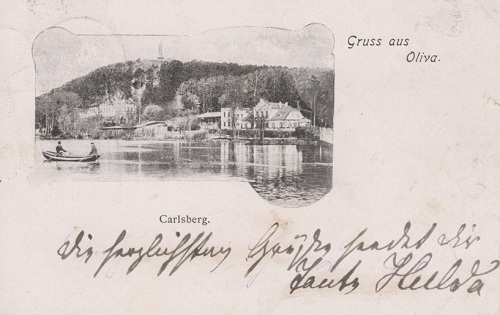 Gruss aus
Oliva.
Carlsberg.
Die herzlichsten Grüße sendet dir
Tante Hulda